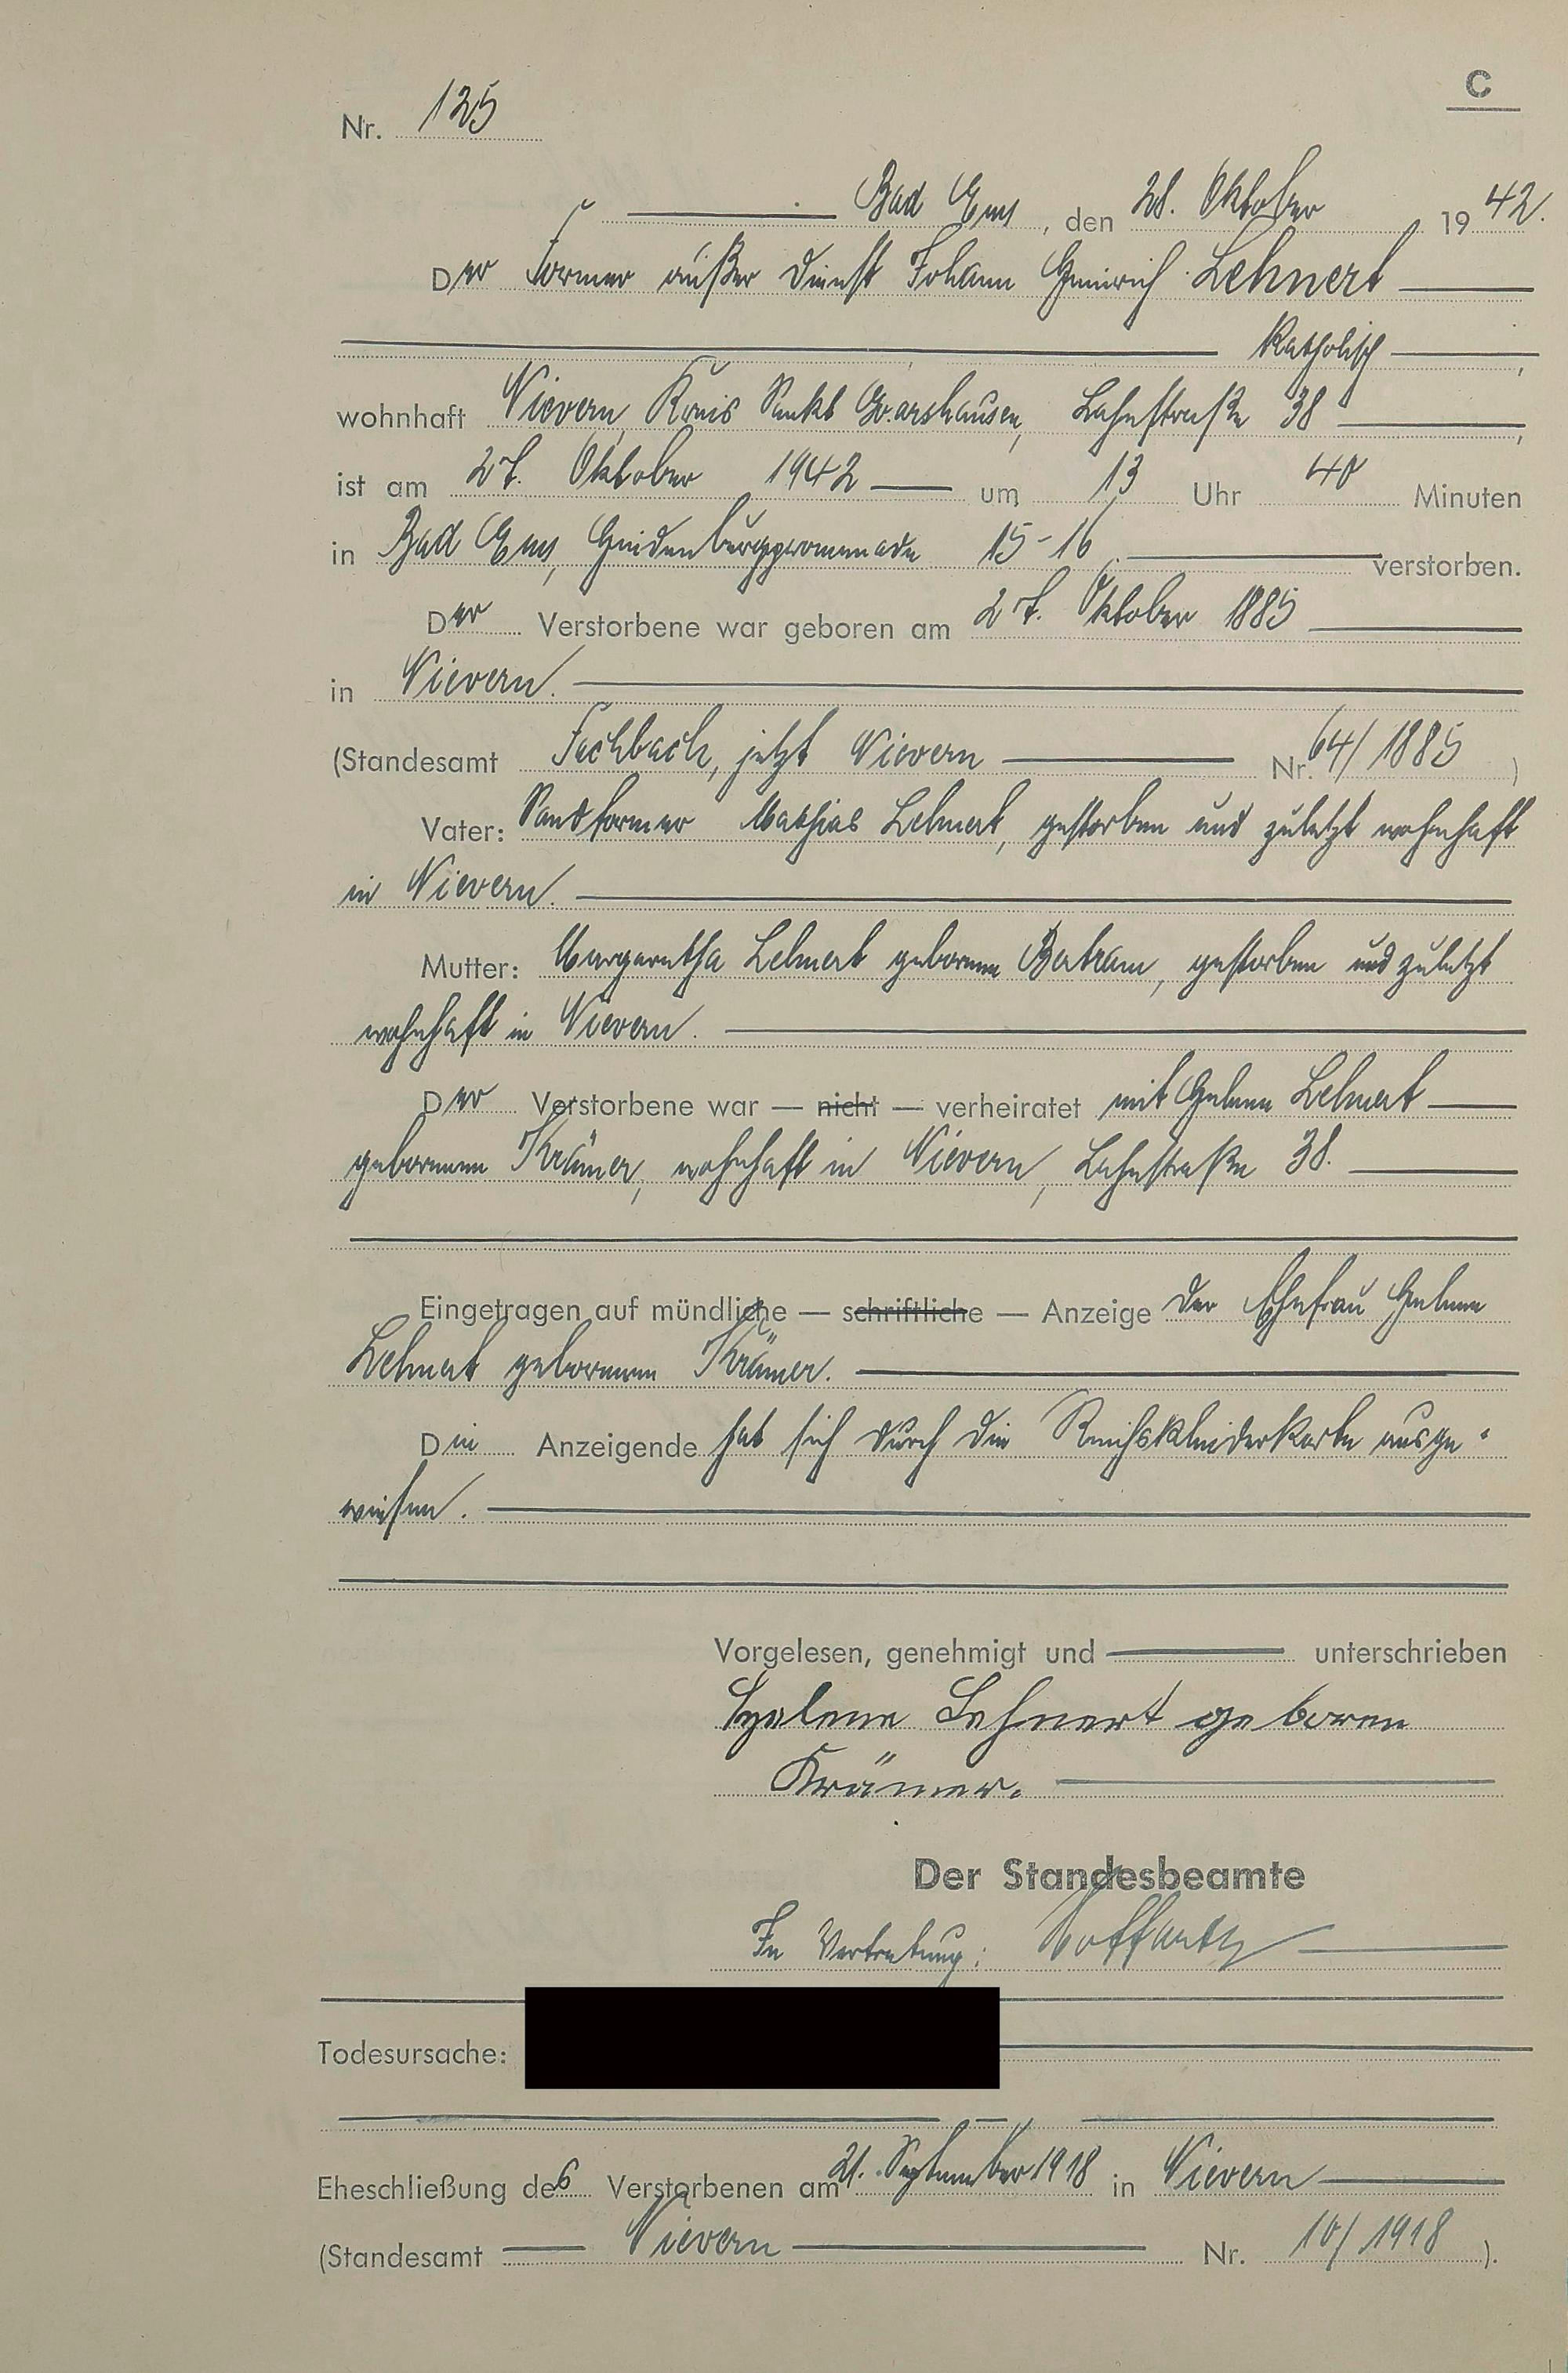 C
Nr. 125
Bad Ems, den 28. Oktober 1942.
Der Former außer Dienst Johann Heinrich Lehnert
katholisch,
wohnhaft Nievern, Kreis Sankt Goarshausen, Lahnstraße 38,
ist am 27. Oktober 1942 um 13 Uhr 40 Minuten
in Bad Ems, Hindenburgpromenade 15-16 verstorben.
Der Verstorbene war geboren am 27. Oktober 1885
in Nievern.
(Standesamt Fachbach, jetzt Nievern Nr. 64/1885)
Vater: Sandformer Mathias Lehnert, gestorben und zuletzt wohnhaft
in Nievern.
Mutter: Margaretha Lehnert geborene Bertram, gestorben und zuletzt
wohnhaft in Nievern.
Der Verstorbene war — nicht — verheiratet mit Helene Lehnert
geborenen Krämer, wohnhaft in Nievern, Lahnstraße 38.
Eingetragen auf mündliche — schriftliche — Anzeige der Ehefrau Helene
Lehnert geborenen Krämer.
Die Anzeigende hat sich durch die Reichskleiderkarte ausge-
wiesen.
Vorgelesen, genehmigt und unterschrieben
Helene Lehnert geboren
Krämer.
Der Standesbeamte
In Vertretung:
Todesursache:
Eheschließung des Verstorbenen am 21. September 1918 in Nievern
(Standesamt Nievern Nr. 10/1918).